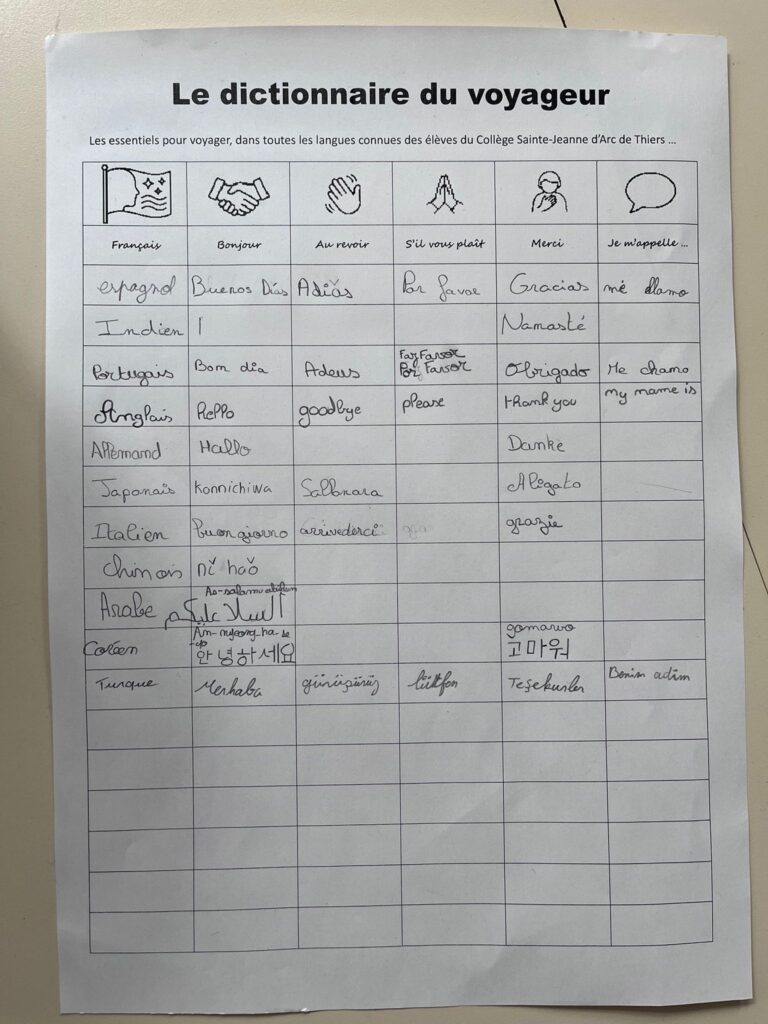 Le dictionnaire du voyageur
Les essentiels pour voyager, dans toutes les langues connues des élèves du Collège Sainte-Jeanne d'Arc de Thiers ...
Français Bonjour Au revoir S'il vous plaît Merci Je m'appelle ...
espagnol Buenos Días Adiós Por favor Gracias me llamo
Indien Namasté
Far Favor
Portugais Bom dia Adeus Por Favor Obrigado Me chamo
Anglais Hello goodbye please thank you my name is
Allemand Hallo Danke
Japonais Konnichiwa Aligato
Italien buongiorno arrivederci grazie
chinois nǐ hǎo
As-salamu alaikum
Arabe السلا عليكم
An-nyeong-ha-se
-yo gomawo
Coréen 안녕하세요 고마워
Turque Merhaba görüşürüz lütfen Teşekürler Benim adim